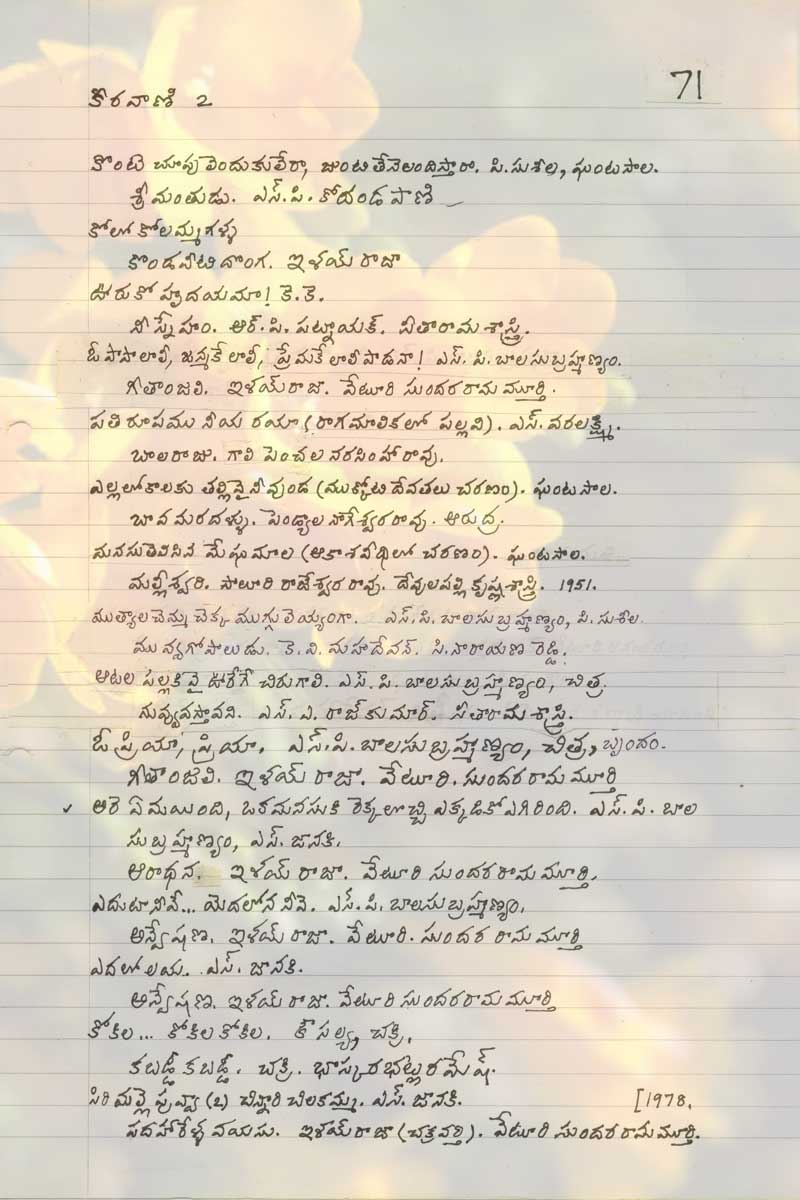 కీరవాణి 2
71
కొంటె చూపులెందుకులేరా, జుంటితేనెలందిస్తారా. పి.సుశీల, ఘంటసాల.
శ్రీమంతుడు. ఎస్.పి. కోదండపాణి
కోలో కోలమ్మగళ్ళ
కొండవీటి దొంగ. ఇళయ్ రాజా
ఊరుకో హృదయమా! కె.కె.
నీ స్నేహం. ఆర్.పి. పట్నాయక్. సీతారామశాస్త్రి.
ఓ పాపాలాలీ, జన్మకే లాలీ, ప్రేమకే లాలీ పాడనా! ఎస్.పి.బాలసుబ్రహ్మణ్యం.
గీతాంజలి. ఇళయ్ రాజా. వేటూరి సుందరరామమూర్తి.
పతి రూపము నీయ రయా (రాగమాలికలో పల్లవి). ఎస్. వరలక్ష్మి.
బాలరాజు. గాలి పెంచల నరసింహారావు.
ఎల్లలోకాలకు తల్లివై నీవుండ (ముక్కోటి దేవతలు చరణం). ఘంటసాల.
బావమరదళ్ళు. పెండ్యాల నాగేశ్వరరావు. ఆరుద్ర.
మనసుతెలిసిన మేఘమాల (ఆకాశవీధిలో చరణం). ఘంటసాల.
మల్లీశ్వరి. సాలూరి రాజేశ్వరరావు. దేవులపల్లి కృష్ణశాస్త్రి. 1951.
ముత్యాలచెమ్మ చెక్క ముగ్గులెయ్యంగా. ఎస్.పి.బాలసుబ్రహ్మణ్యం, పి.సుశీల.
మువ్వగోపాలుడు. కె.వి.మహదేవన్. సి.నారాయణ రెడ్డి.
ఆటల పల్లకివై ఊరేగే చిరుగాలి. ఎస్.పి.బాలసుబ్రహ్మణ్యం, చిత్ర.
నువ్వువస్తావని. ఎస్.ఎ.రాజ్ కుమార్. సీతారామశాస్త్రి.
ఓ ప్రియా, ప్రియా. ఎస్.పి.బాలసుబ్రహ్మణ్యం, చిత్ర, బృందం.
గీతాంజలి. ఇళయ్ రాజా. వేటూరి. సుందరరామమూర్తి
✓ ఆరె ఏమయింది, ఒకమనసుకి రెక్కలొచ్చి ఎక్కడికోఎగిరింది. ఎస్.పి.బాల
సుబ్రహ్మణ్యం, ఎస్.జానకి.
ఆరాధన. ఇళయ్ రాజా. వేటూరి సుందరరామమూర్తి.
ఎదుటానీవే... యెదలోన నీవె. ఎస్.పి.బాలసుబ్రహ్మణ్యం.
అన్వేషణ. ఇళయ్ రాజా. వేటూరి. సుందర రామమూర్తి
ఎదలో లయ. ఎస్. జానకి.
అన్వేషణ. ఇళయ్ రాజా. వేటూరి సుందరరామమూర్తి
కోకిల... కోకిలకోకిల. కౌసల్య, చక్రి.
కబడ్డీ కబడ్డీ. చక్రి. భాస్కరభట్లురమేష్.
సిరిమల్లె పువ్వా (2) చిన్నారి చిలకమ్మ. ఎస్. జానకి. [1978.
పదహారేళ్ళ వయసు. ఇళయ్ రాజా (చక్రవర్తి). వేటూరి సుందరరామమూర్తి.